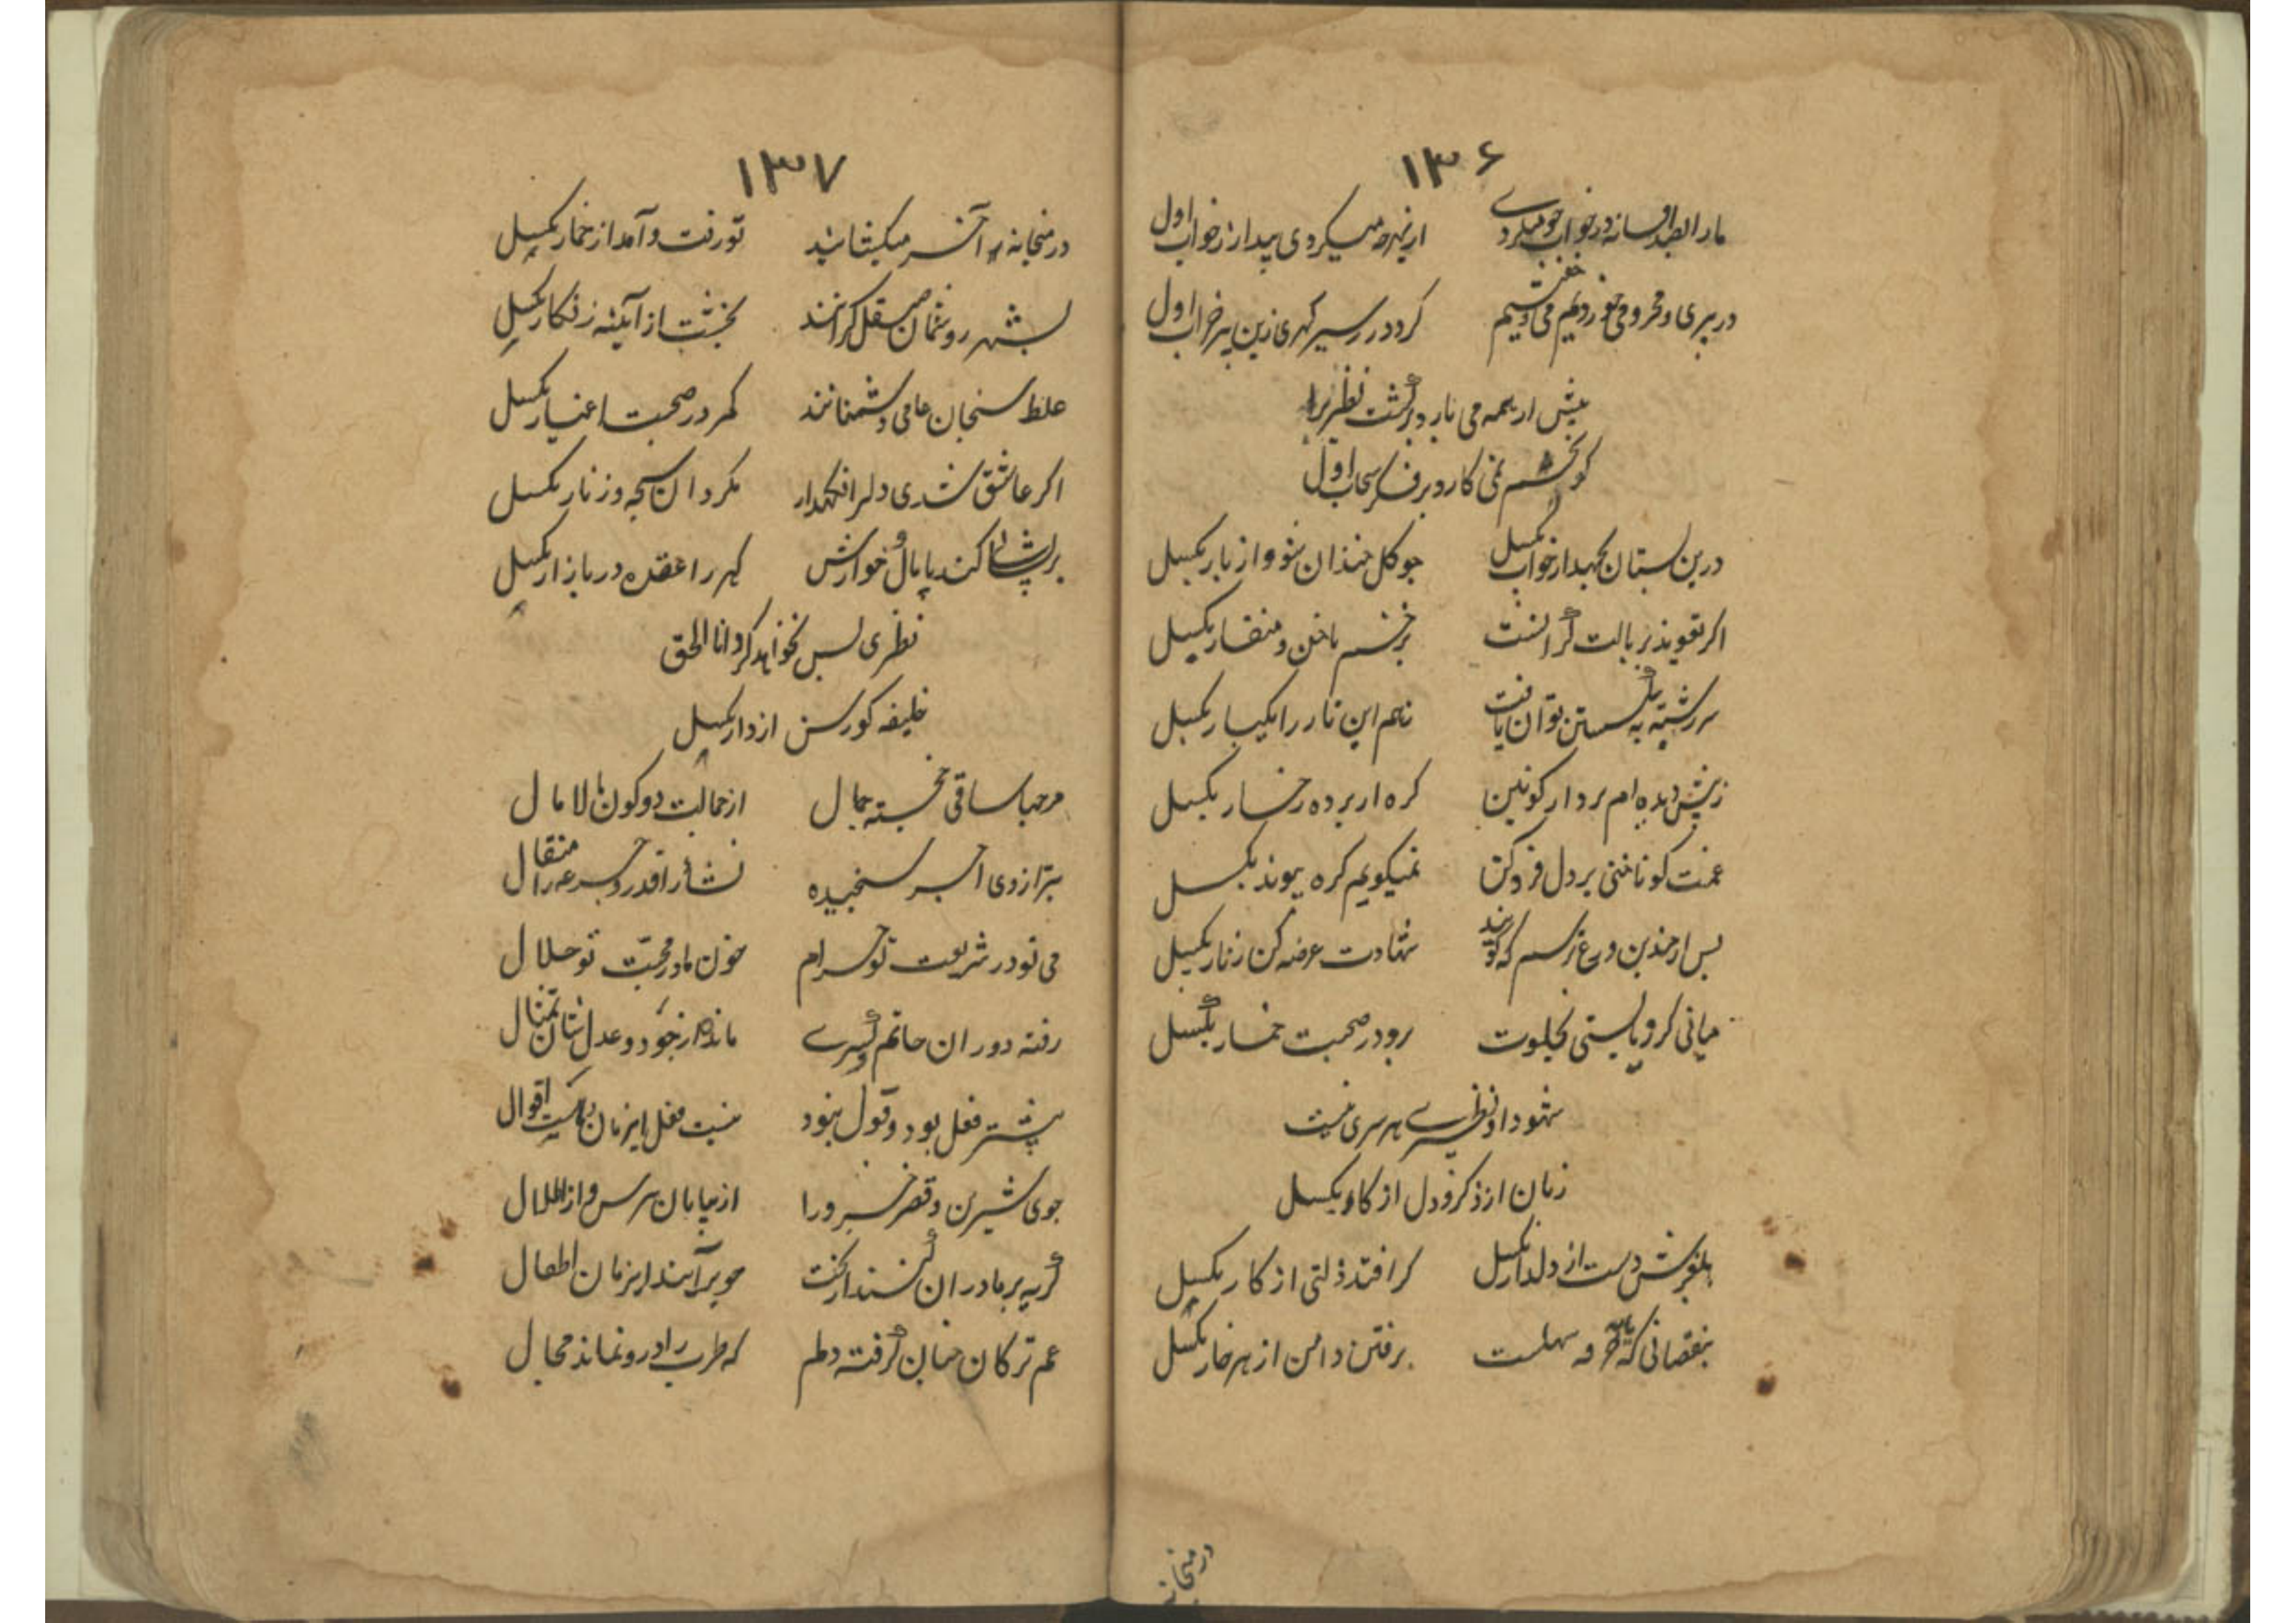 ۱۳۶
ما را بصد افسانه در خواب چو میکردی از بهر چه میکردی بیدار ز خواب اول
در پیری و محرومی خوردیم می و خفتیم کردد سیر زین پیر خراب اول
عیش از همه می بارد بر کشت نظیری را
کو تخم نمی کارد بر فکر سحاب اول
درین بستان بجهد از خواب بکسل چو کل خندان شو و از بار بکسل
اکر تعویذ بر بالت گرانست بزخم ناخن و منقار بکسل
سر رشته به بگسستن توان یافت تو هم این تار را یکبار بکسل
ز پیش دیده ام بردار کونین کره از پرده رخسار بکسل
غمت کو ناخنی بر دل فرو کن نمیکویم کره پیوند بکسل
پس از چندین ورع ترسم که کویند شهادت عرضه کن زنار بکسل
میانی کر و بایستی بخلوت برو در صحبت خمار بگسل
شهود او نظیری سرسری نیست
زبان از ذکر و دل از کار بکسل
بلغزش دست از دلدار بکسل کر افتد ذلتی از کار بکسل
بنقصانی که سهلست برفتن دامن از هر خار بکسل
در میخانه
۱۳۷
در میخانه را آخر میکشایند تو رفت و آمد از خمار بکسل
بشهر روشنان صیقل کرانند بخشت از آینه زنکار بکسل
غلط سنجان عامی دشمنانند کهر در صحبت اغیار بکسل
اکر عاشق شدی دل را نکهدار مکردان سبحه و زنار بکسل
پریشانی کند پامال و خوارش کهر را عقده در بازار بکسل
نظیری بس نخواهد کرد انا الحق
خلیفه کو رسن از دار بکسل
مرحبا ساقی خجسته جمال از جمالت دو کون مالامال
بترازوی اجر سنجیده نشاء را قدر و جرعه را مثقال
می تو در شریعت تو حرام خون ما در محبت تو حلال
رفته دوران حاتم و کسری مانده از جود و عدل شان تمثال
پیشتر فعل بود و قول نبود نیست فعل این زمان و هست اقوال
جوی شیرین و قصر خسرو را از بیابان بپرس و از اطلال
گریه بر مادران کنند از بخت چو برآیند این زمان اطفال
غم ترکان چنان گرفته دلم که طرب را درو نماند مجال